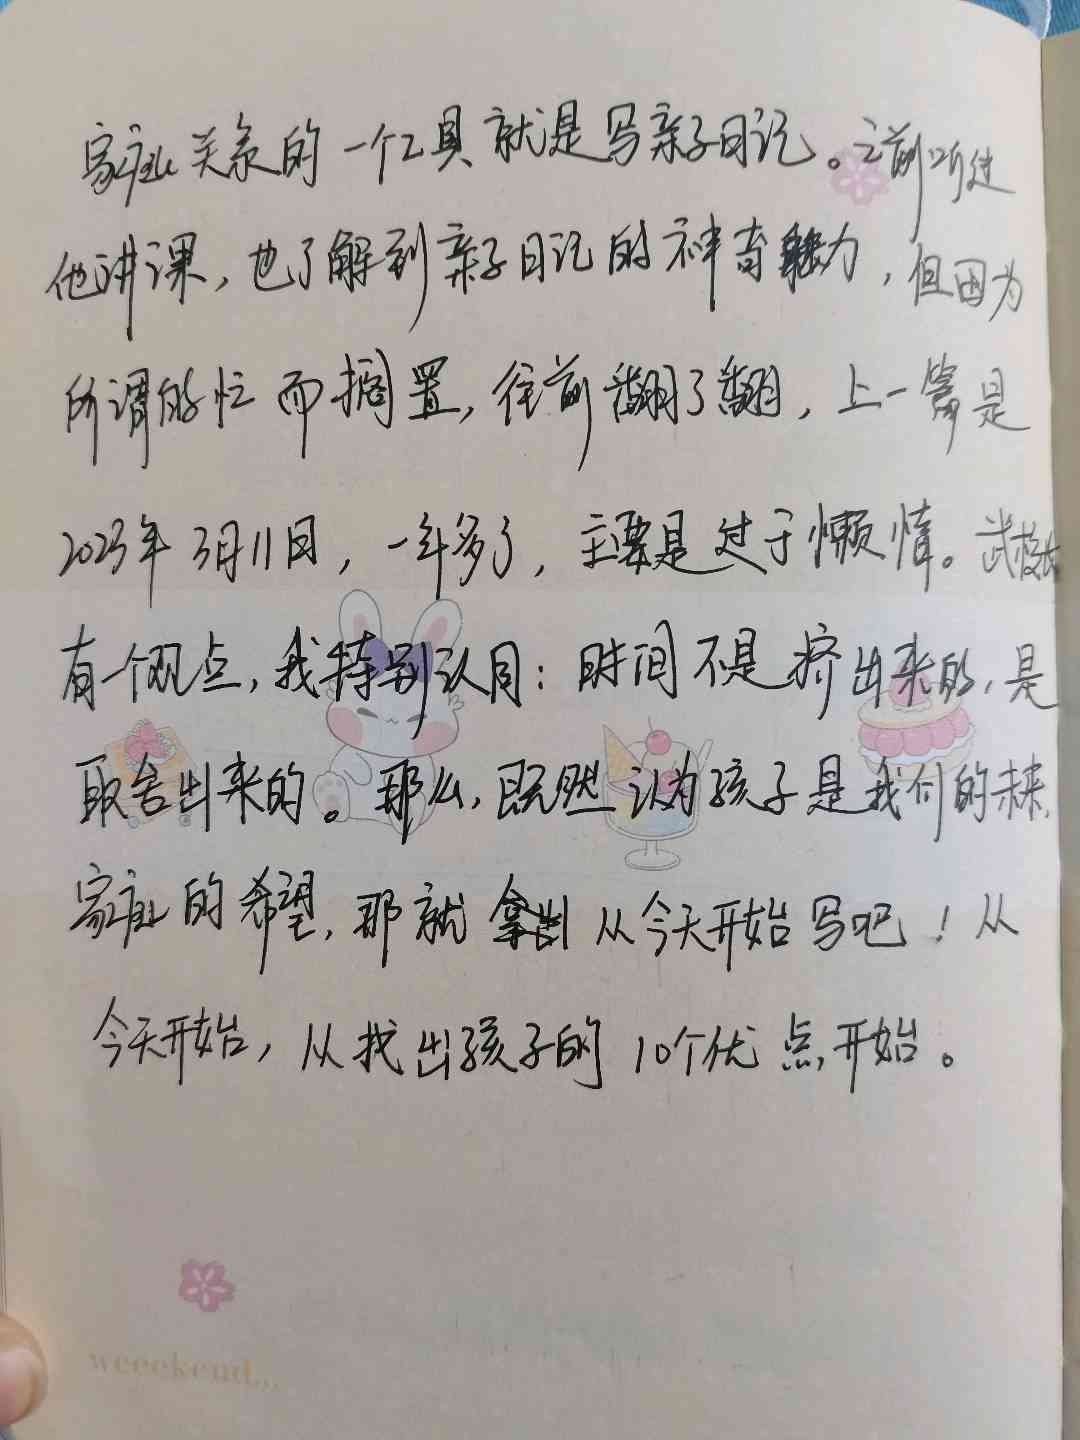 家庭关系的一个工具就是写亲子日记。之前听过
他讲课，也了解到亲子日记的神奇魅力，但因为
所谓的忙而搁置，往前翻了翻，上一篇是
2023年3月11日，一年多了，主要是过于懒惰。武校长
有一个观点，我特别认同：时间不是挤出来的，是
取舍出来的。那么，既然认为孩子是我们的未来，
家庭的希望，那就拿出从今天开始写吧！从
今天开始，从找出孩子的10个优点开始。
weeekend...